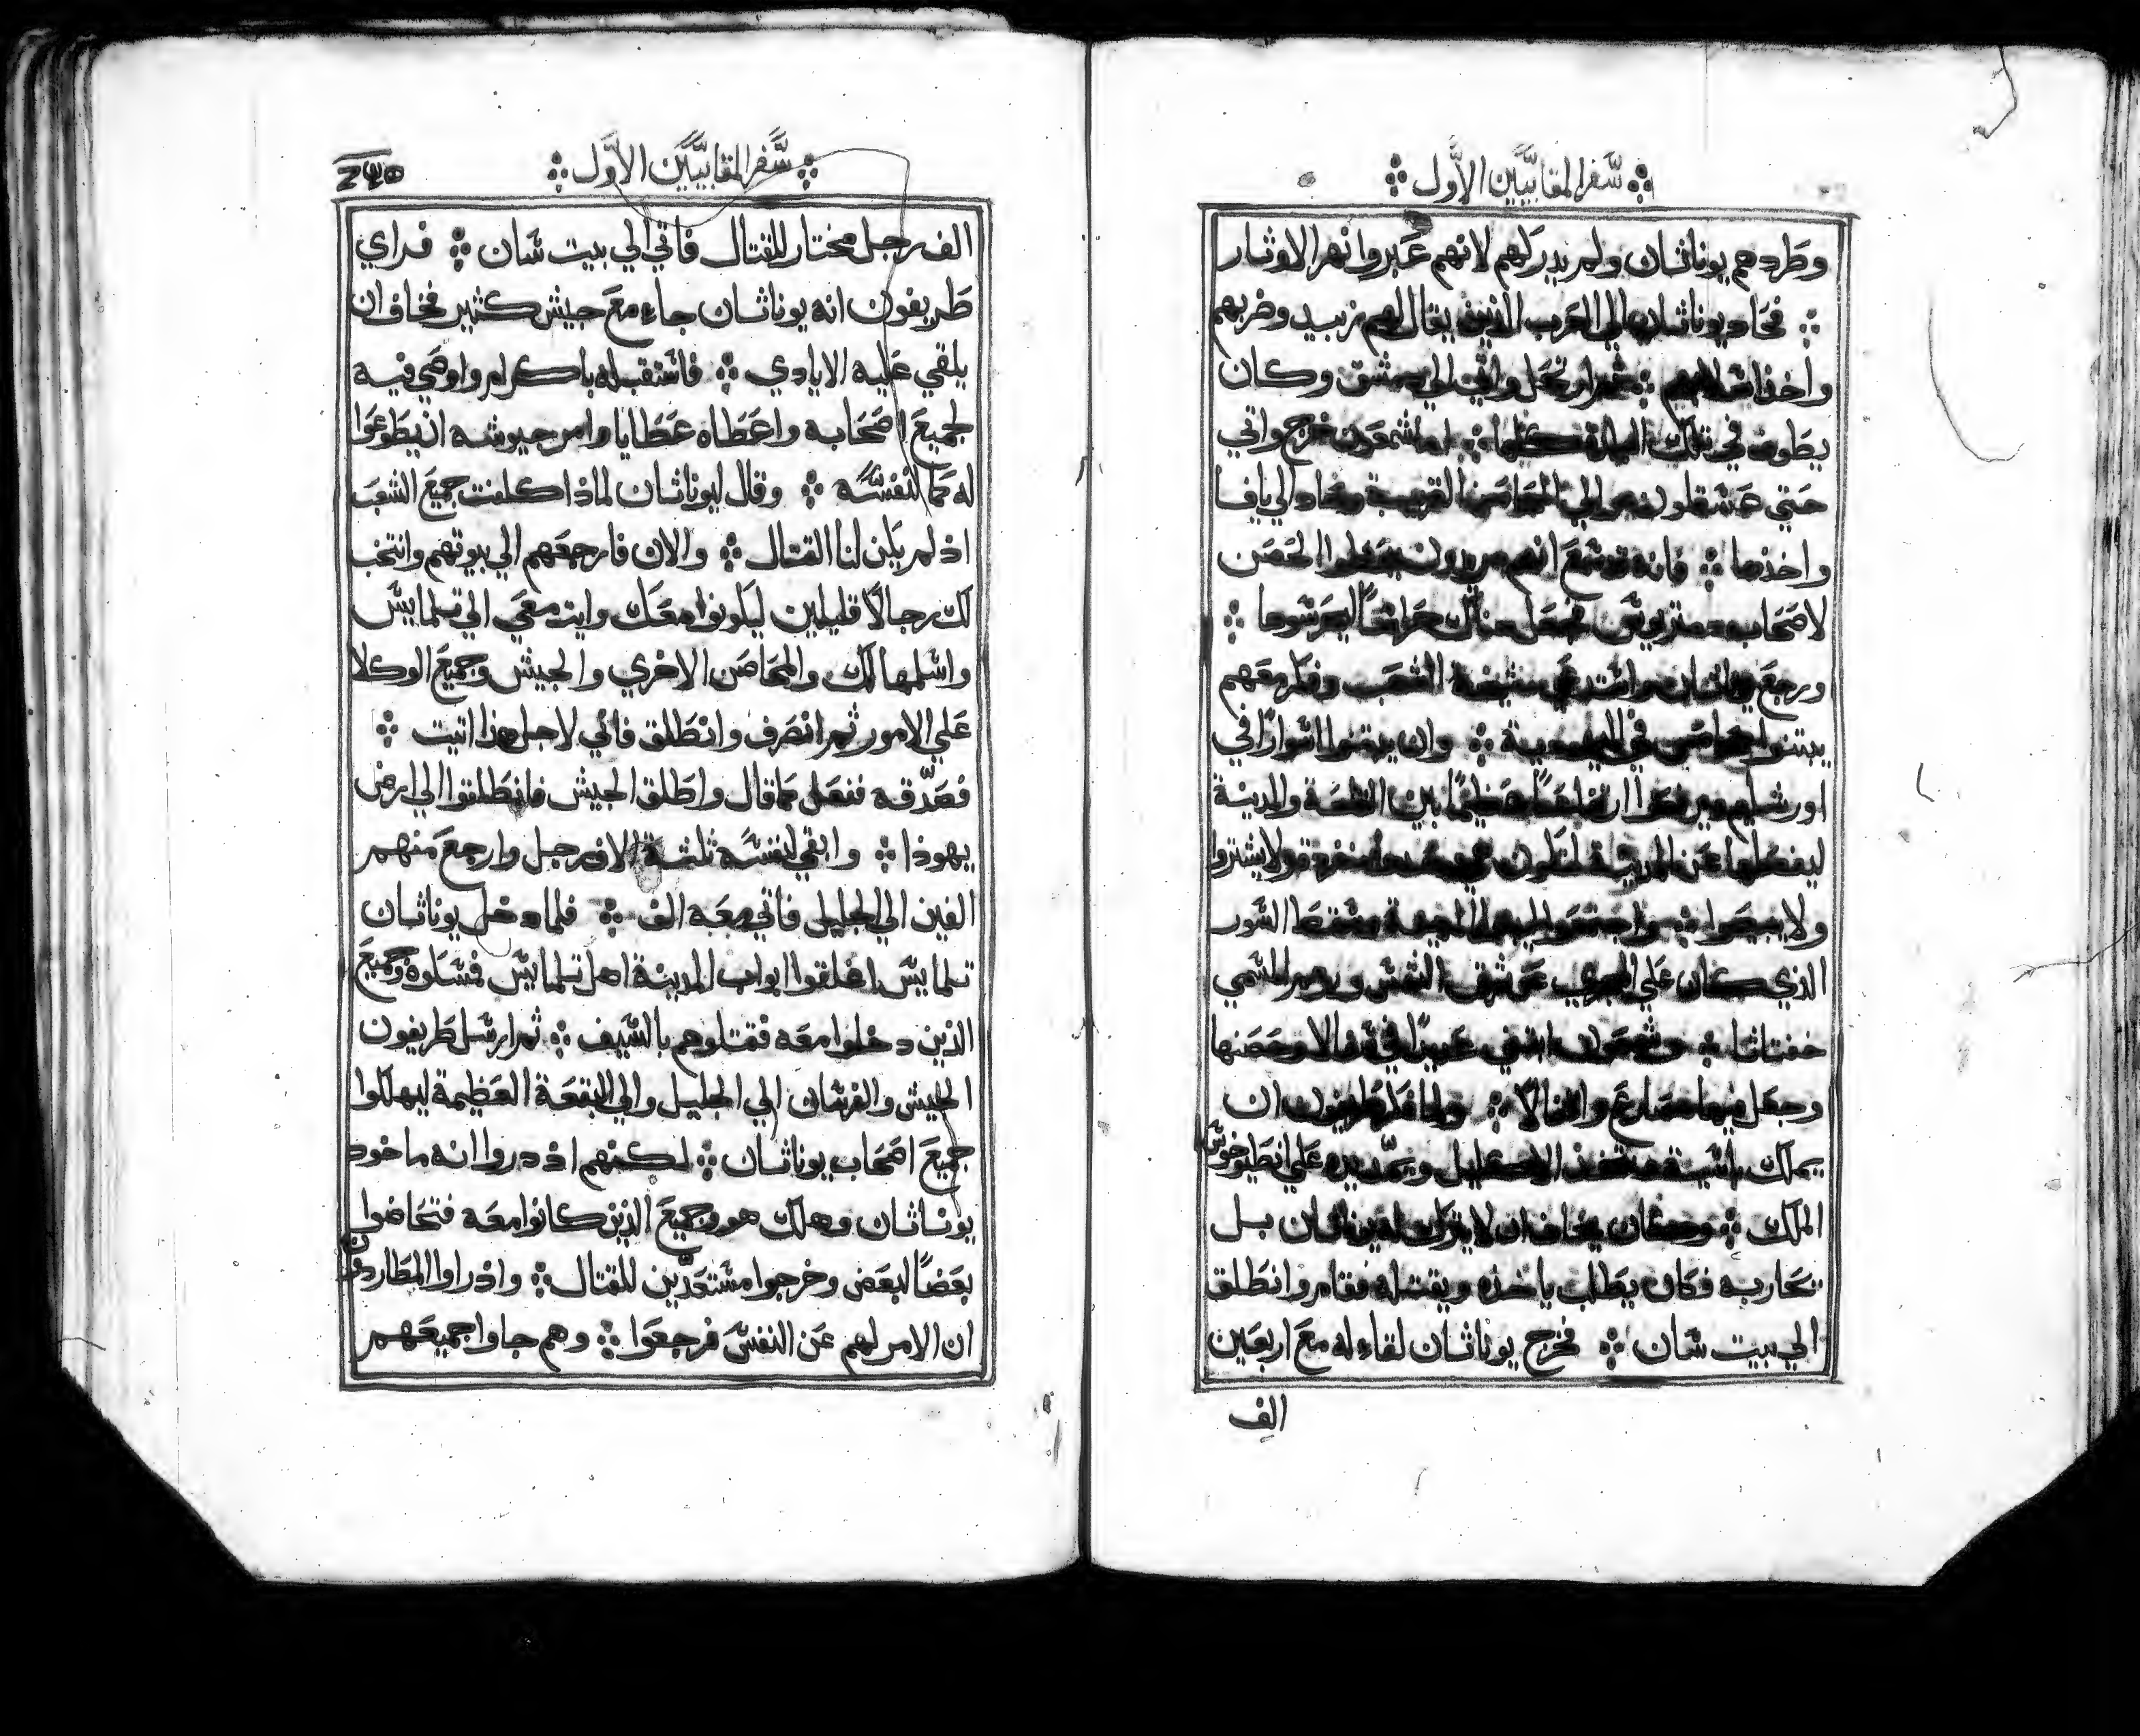 سفر المقابيين الاول
وطردهم يوناثان ولم يدركهم لانهم عبروا نهر الاوثار
فحاد يوناثان الي العرب الذين يقال لهم زبيد وضربهم
واخذ اسلابهم ثم ارتحل واتي الي دمشق وكان
يطوف في تلك البلاد كلها اما شمعون فخرج واتي
حتي عسقلون والي المحاصن القريبة وحاد الي يافا
واخذها فانه سمع انهم يريدون يعطوا الحصن
لاصحاب ديمتريوس فجعل هناك حراسا ليحرسوها
ورجع يوناثان واستدعي مشيخة الشعب وفكر معهم
يبتنوا محاصن في اليهودية وان يبتنوا اسوارا في
اورشليم وان يرفعوا ارتفاعا عظيما بين القلعة والمدينة
ليفصلوها عن المدينة لتكون منفردة ولا يشتروا
ولا يبيعوا واجتمعوا ليبنوا المدينة فسقط السور
الذي كان علي الوادي عن شرق الشمس المسمي
خفناثا وشمعون ابتني حديدا في وحصنها
وجعل فيها مصارع واقفالا ولما فكر طريفون ان
يملك اسية ويتخذ الاكليل ويمد يده علي انطيوخوس
الملك وكان يخاف ان لا يتركه يوناثان بل
يحاربه فكان يطلب ياخذه ويقتله فقام وانطلق
الي بيت شان فخرج يوناثان لقاء له مع اربعين
الف
سفر المقابيين الاول
الف رجل مختار للقتال فاتي الي بيت شان فراي
طريفون انه يوناثان جاء مع جيش كثير فخاف ان
يلقي عليه الايادي فاستقبله باكرام واوصي فيه
لجميع اصحابه واعطاه عطايا وامر جيوشه ان يطوعوا
له كما لنفسه وقال ليوناثان لماذا كلفت جميع الشعب
اذ لم يكن لنا القتال والان فارجعهم الي بيوتهم وانتخب
لك رجالا قليلين ليكونوا معك وايت معي الي تلمايس
واسلمها لك والمحاصن الاخري والجيش وجميع الوكلا
علي الامور ثم انصرف وانطلق فاني لاجل هذا اتيت
فصدقه ففعل كما قال واطلق الجيش فانطلقوا الي ارض
يهوذا وابقي لنفسه ثلثة الاف رجل وارجع منهم
الفين الي الجليل فاتي معه الف فلما دخل يوناثان
تلمايس اغلقوا ابواب المدينة اهل تلمايس فمسكوه وجميع
الذين دخلوا معه فقتلوهم بالسيف ثم ارسل طريفون
الجيش والفرسان الي الجليل والي البقعة العظيمة ليهلكوا
جميع اصحاب يوناثان لكنهم اذ دروا انه ماخود
يوناثان وهلك هو وجميع الذين كانوا معه فتحاضوا
بعضا لبعض وخرجوا مستعدين للقتال واذ راوا المطاردون
ان الامر لهم عن النفس فرجعوا وهم جاوا جميعهم